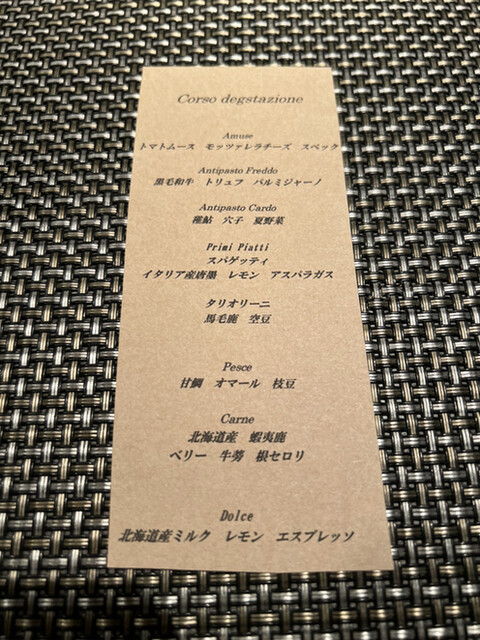 Corso degstazione
Amuse
トマトムース　モッツァレラチーズ　スペック
Antipasto Freddo
黒毛和牛　トリュフ　パルミジャーノ
Antipasto Cardo
稚鮎　穴子　夏野菜
Primi Piatti
スパゲッティ
イタリア産唐墨　レモン　アスパラガス
タリオリーニ
馬毛鹿　空豆
Pesce
甘鯛　オマール　枝豆
Carne
北海道産　蝦夷鹿
ベリー　牛蒡　根セロリ
Dolce
北海道産ミルク　レモン　エスプレッソ